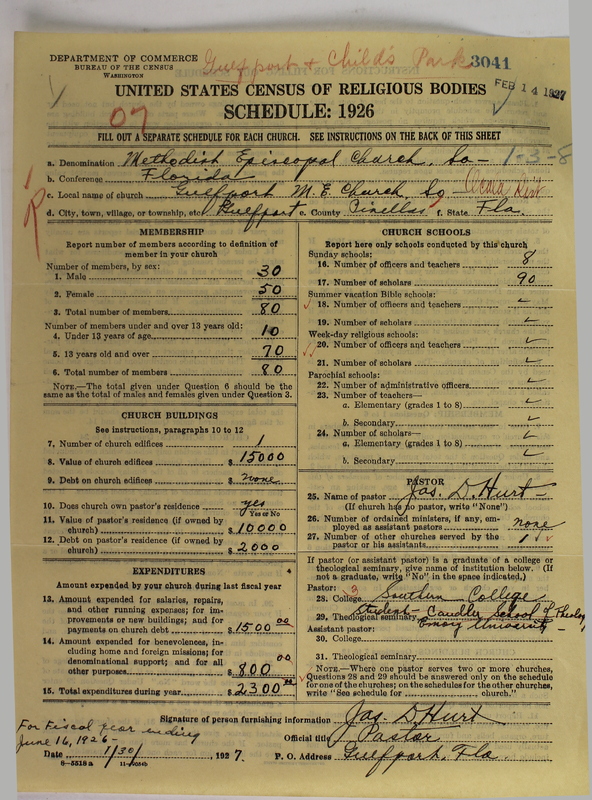 Gulfport & Child's Park
3041
DEPARTMENT OF COMMERCE
BUREAU OF THE CENSUS
WASHINGTON
FEB 14 1927
UNITED STATES CENSUS OF RELIGIOUS BODIES
SCHEDULE: 1926
07
FILL OUT A SEPARATE SCHEDULE FOR EACH CHURCH. SEE INSTRUCTIONS ON THE BACK OF THIS SHEET
a. Denomination Methodist Episcopal Church, So- 1-3-8
b. Conference Florida
c. Local name of church Gulfport M. E. Church, So
d. City, town, village, or township, etc. Gulfport e. County Pinellas f. State Fla.
R
MEMBERSHIP
Report number of members according to definition of
member in your church
Number of members, by sex:
1. Male 30
2. Female 50
3. Total number of members 80
Number of members under and over 13 years old:
4. Under 13 years of age 10
5. 13 years old and over 70
6. Total number of members 80
NOTE.—The total given under Question 6 should be
same as the total of males and females given under Question 3.
CHURCH BUILDINGS
See instructions, paragraphs 10 to 12
7. Number of church edifices 1
8. Value of church edifices $ 15000
9. Debt on church edifices $ none
10. Does church own pastor's residence yes
Yes or No
11. Value of pastor's residence (if owned by
church) $ 10000
12. Debt on pastor's residence (if owned by
church) $ 2000
EXPENDITURES
Amount expended by your church during last fiscal year
13. Amount expended for salaries, repairs,
and other running expenses; for im-
provements or new buildings; and for
payments on church debt $ 1500 00
14. Amount expended for benevolences, in-
cluding home and foreign missions; for
denominational support; and for all
other purposes $ 800 00
15. Total expenditures during year $ 2300 00
CHURCH SCHOOLS
Report here only schools conducted by this church
Sunday schools:
16. Number of officers and teachers 8
17. Number of scholars 90
Summer vacation Bible schools:
18. Number of officers and teachers
19. Number of scholars
Week-day religious schools:
20. Number of officers and teachers
21. Number of scholars
Parochial schools:
22. Number of administrative officers
23. Number of teachers—
a. Elementary (grades 1 to 8)
b. Secondary
24. Number of scholars—
a. Elementary (grades 1 to 8)
b. Secondary
PASTOR
25. Name of pastor Jas. D. Hurt-
(If church has no pastor, write "None")
26. Number of ordained ministers, if any, em-
ployed as assistant pastors none
27. Number of other churches served by the
pastor or his assistants 1
If pastor (or assistant pastor) is a graduate of a college or
theological seminary, give name of institution below. (If
not a graduate, write "No" in the space indicated.)
Pastor: 3
28. College Southern College
29. Theological seminary Student - Candler School of Theology
Emory University -
Assistant pastor:
30. College
31. Theological seminary
NOTE.—Where one pastor serves two or more churches,
Questions 28 and 29 should be answered only on the schedule
for one of the churches; on the schedules for the other churches,
write "See schedule for church."
Signature of person furnishing information Jas. D. Hurt
Official title Pastor
For Fiscal year ending
June 16, 1926-
Date 1/30/, 1927. P. O. Address Gulfport, Fla.